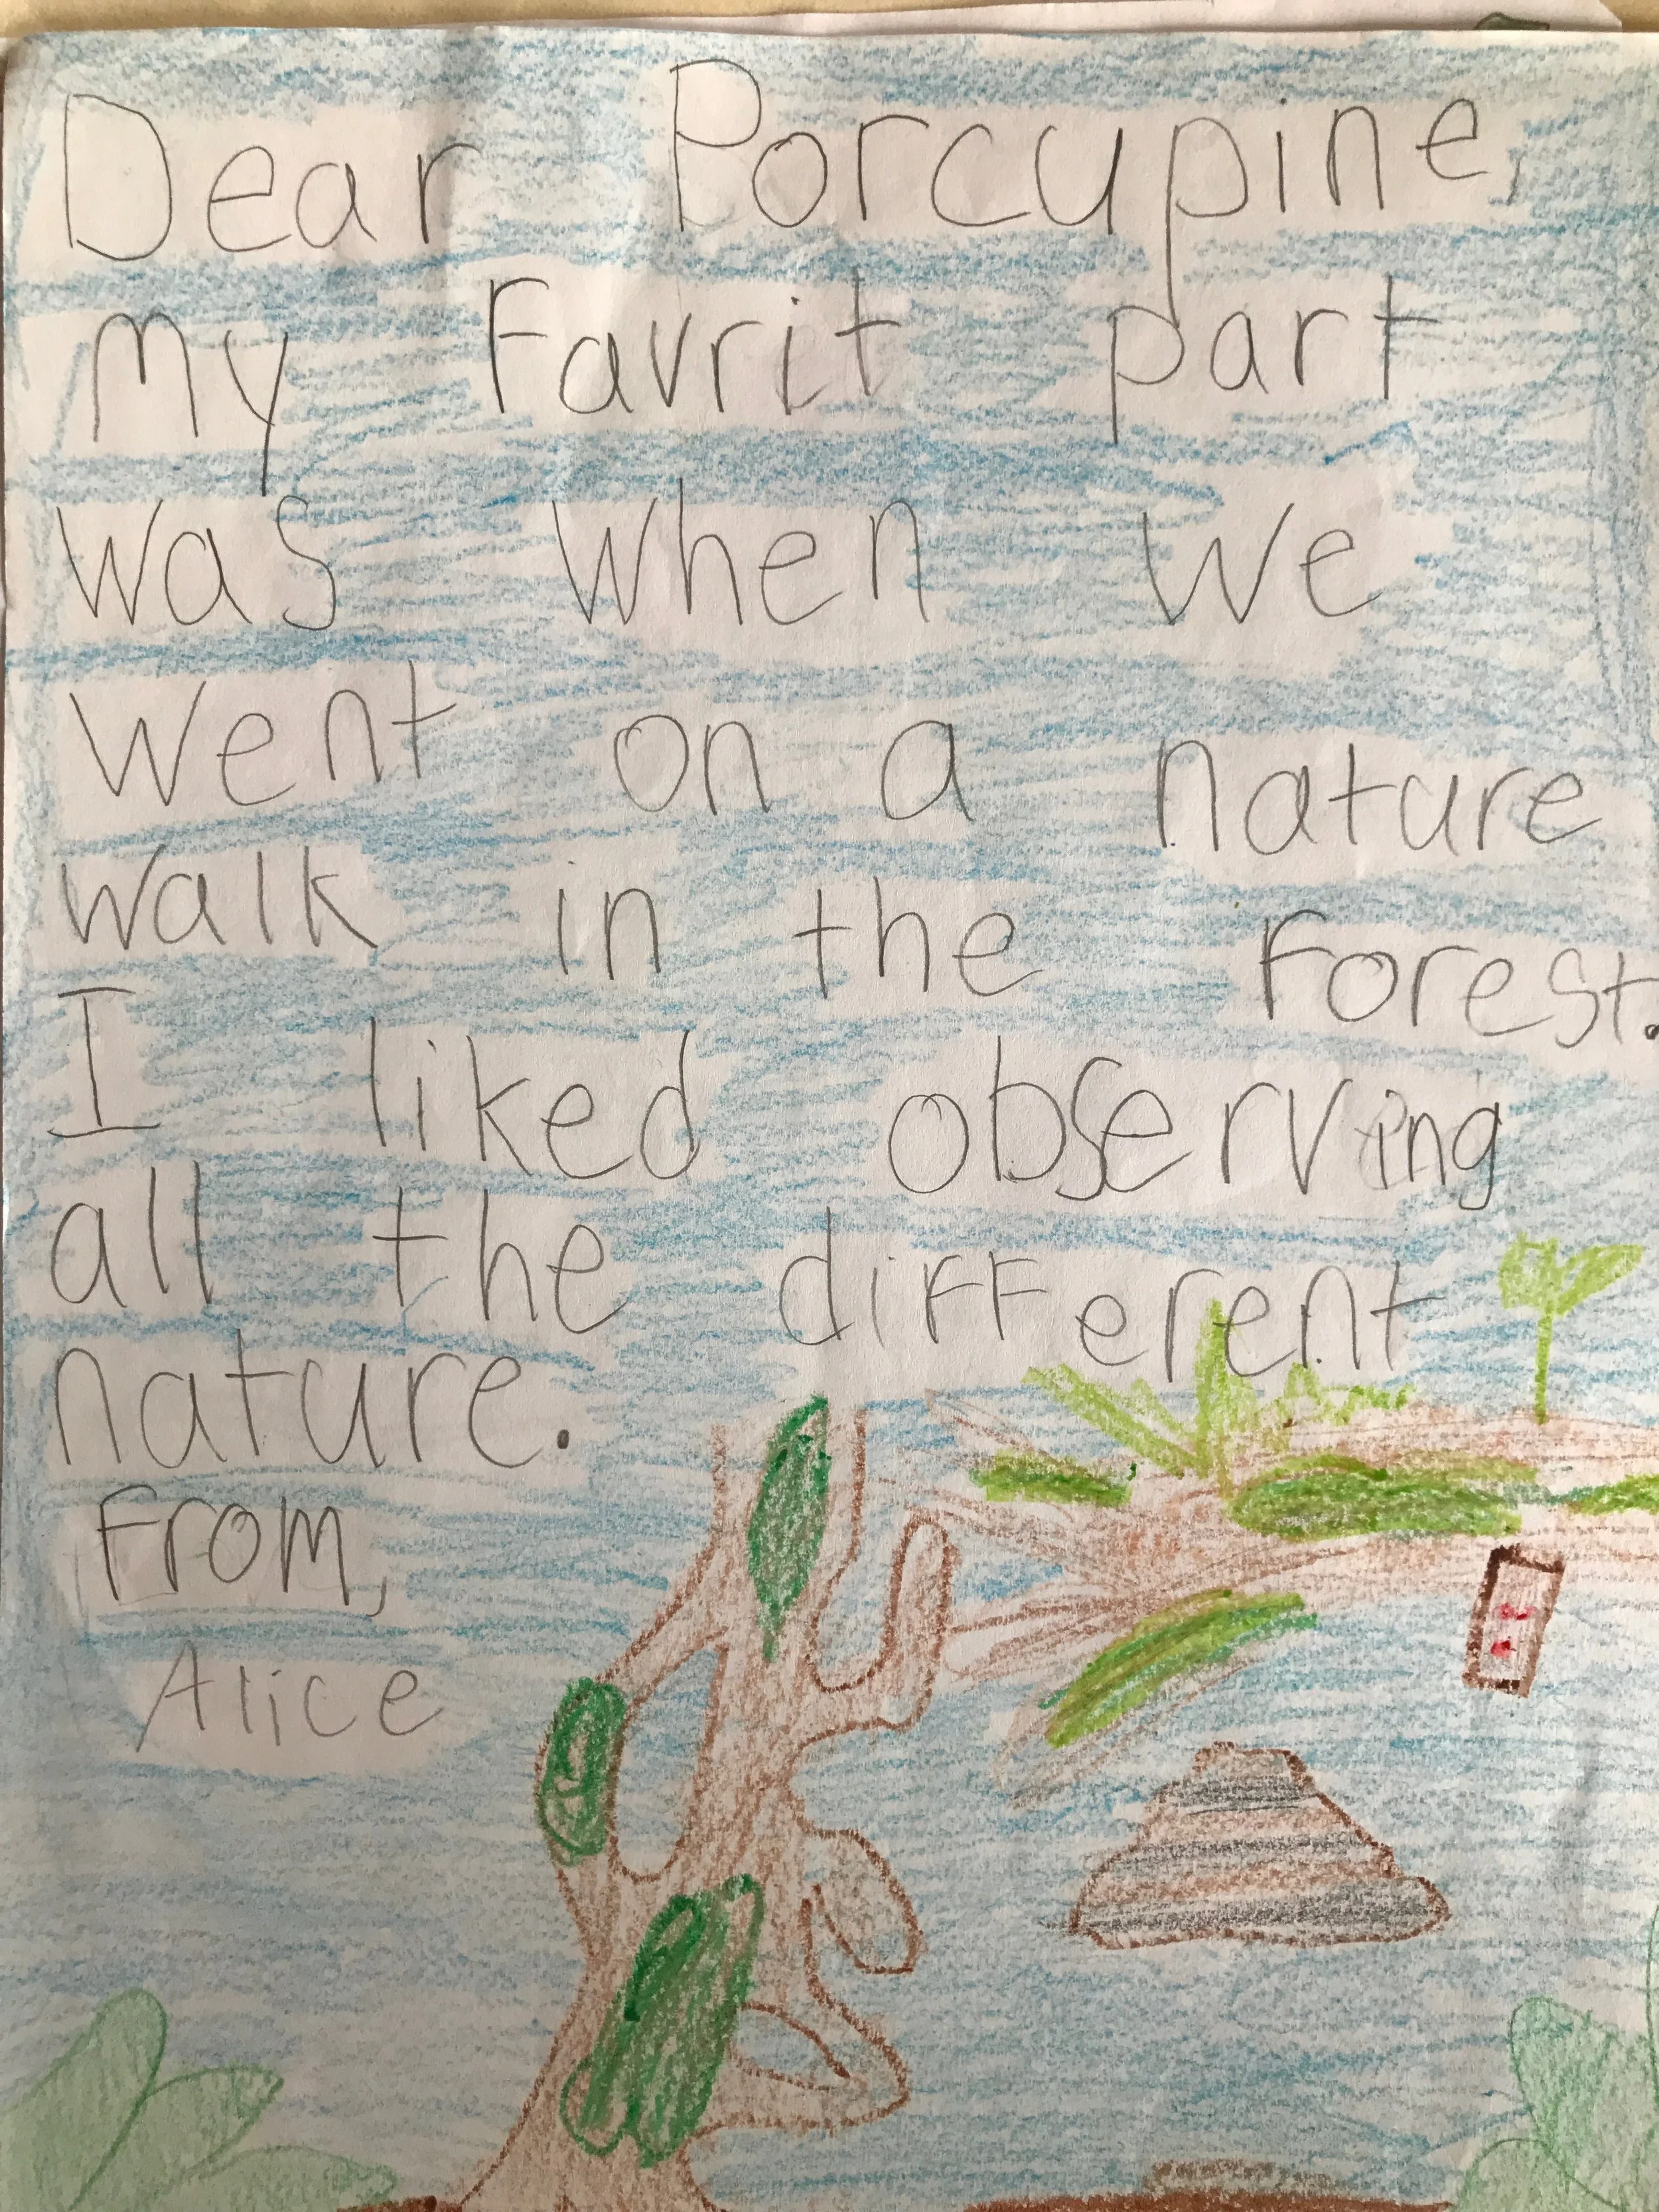 Dear Porcupine,
My Favrit part
was when we
went on a nature
walk in the Forest.
I liked observing
all the diFFerent
nature.
From,
Alice